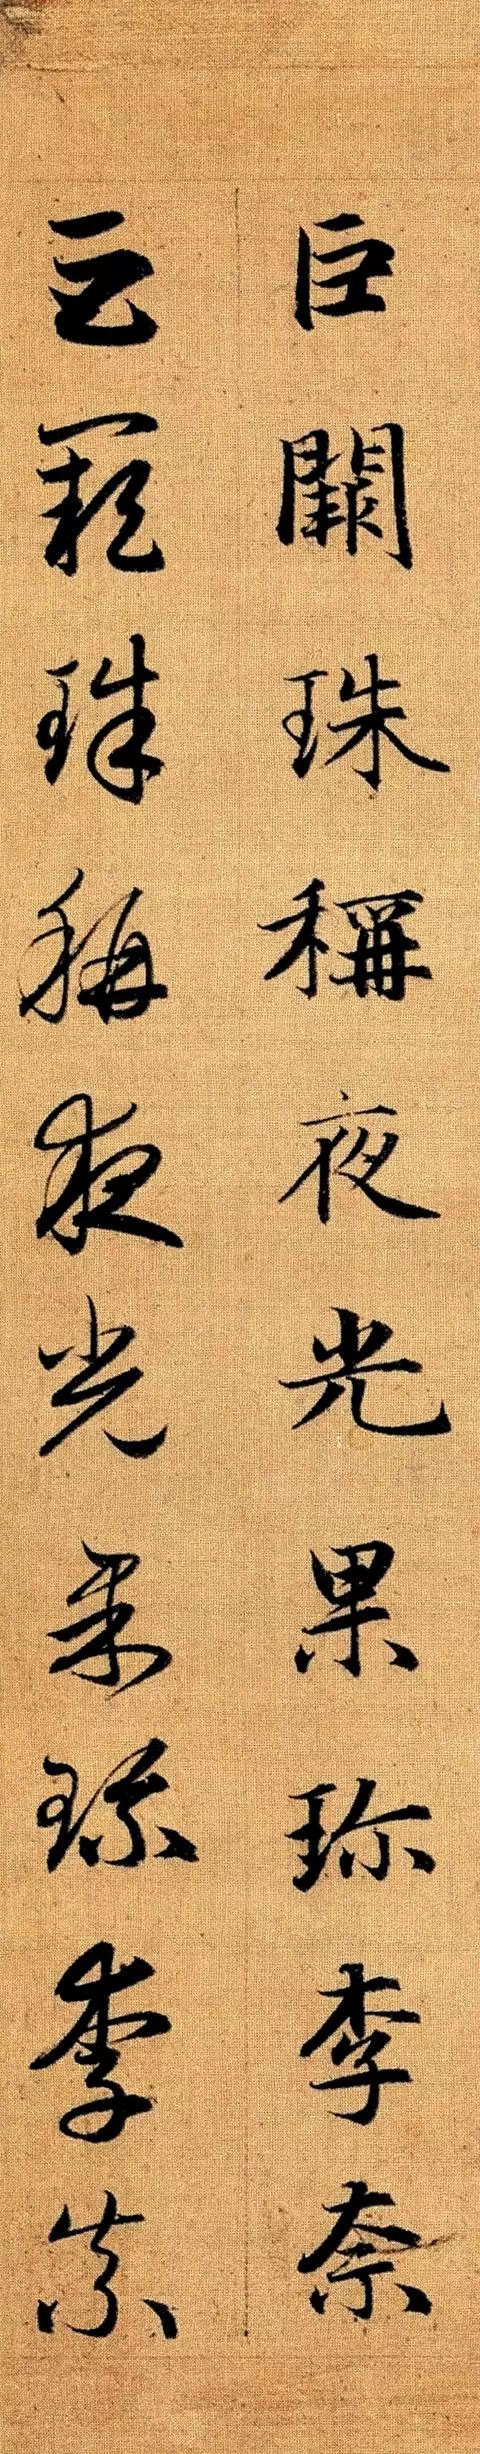 巨闕珠稱夜光果珍李奈
巨闕珠稱夜光果珍李奈